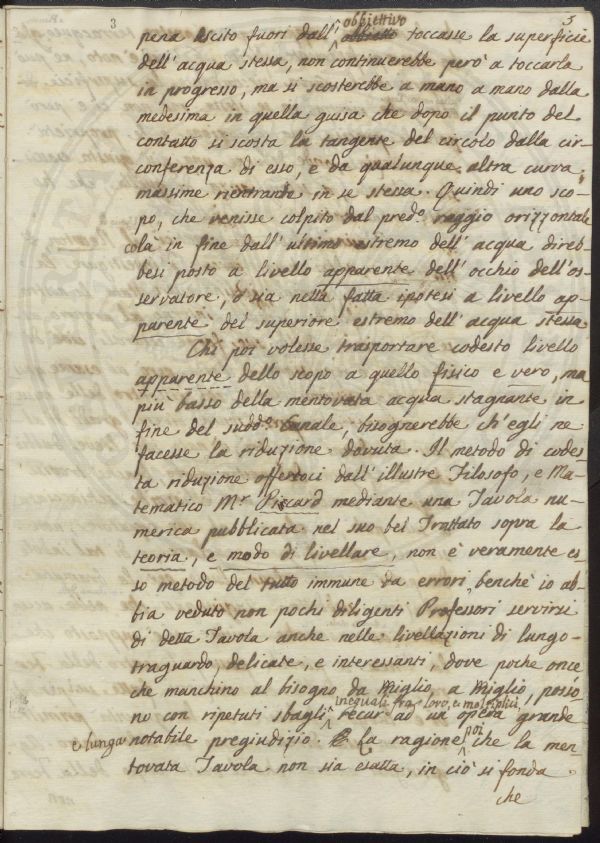 3
3
pena escito fuori dall' obbiettivo toccasse la superficie
dell'acqua stessa, non continuerebbe però a toccarla
in progresso, ma si scosterebbe a mano a mano dalla
medesima in quella guisa che dopo il punto del
contatto si scosta la tangente del circolo dalla cir-
conferenza di esso, e da qualunque altra curva,
massime rientrante in se stessa. Quindi uno sco-
po, che venisse colpito dal pred.o raggio orizzontale
colà in fine dall'ultimo estremo dell'acqua direb-
besi posto a livello apparente dell'occhio dell'os-
servatore, o sia nella fatta ipotesi a livello ap-
parente del superiore estremo dell'acqua stessa
Chi poi volesse trasportare codesto livello
apparente dello scopo a quello fisico e vero, ma
più basso della mentovata acqua stagnante in
fine del sudd.o Canale, bisognerebbe ch'egli ne
facesse la riduzione dovuta. Il metodo di codes-
ta riduzione offertoci dall'illustre Filosofo, e Ma-
tematico M.r Piccard mediante una Tavola nu-
merica pubblicata nel suo bel Trattato sopra la
teoria, e modo di livellare, non è veramente es-
so metodo del tutto immune da errori, benchè io ab-
bia veduto non pochi diligenti Professori servirsi
di detta Tavola anche nelle livellazioni di lungo-
traguardo, delicate, e interessanti, dove poche once
che manchino al bisogno da Miglio, a Miglio, posso-
no con ripetuti sbagli inequali fra loro, e moltiplici, recar ad un'opera grande
e lunga notabile pregiudizio. La ragione poi che la men-
tovata Tavola non sia esatta, in ciò si fonda
che